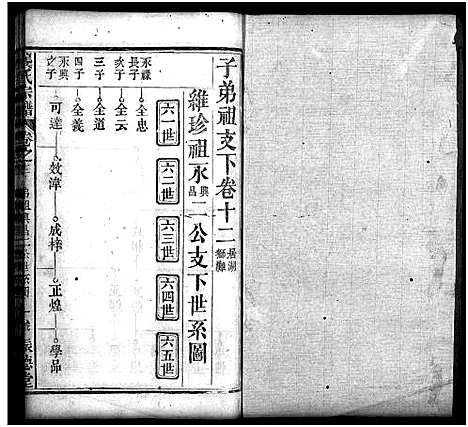 子弟祖支下卷十二
居湖
維珍祖永興昌二公支下世系圖
六一世
六二世
六三世
六四世
六五世
永祿
長子
全忠
次子
全云
三子
全道
四子
全義
永興
之子
可達
效漳
成梓
正煌
學品
氏宗譜
卷之